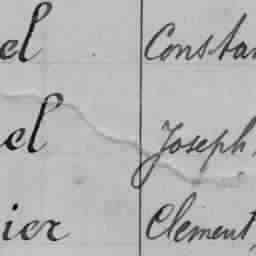 el Constan
el Joseph
ier Clement,